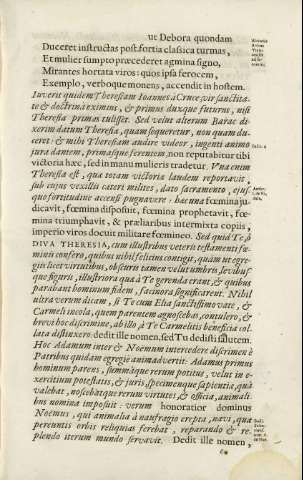 ut Debora quondam
Duceret instructas post fortia classica turmas,
Et mulier sumpto præcederet agmina signo,
Mirantes hortata viros: quos ipsa ferocem,
Exemplo, verboque monens, accendit in hostem.
Iuveris quidem Theresiam Ioannes à Cruce vir sanctita-
te & doctrina eximius, & primus duxque futurus, nisi
Theresia primas tulisset. Sed velut alterum Barac di-
xerim datum Theresia, quam sequeretur, non quam du-
ceret: & mihi Theresiam audire videor, ingenti animo
jura damem, primasque ferentem, non reputabitur tibi
victoria hæc, sed in manu mulieris tradetur. Vna enim
Theresia est, qua totam victoria laudem reportavit,
sub cujus vexillis cateri milites, dato sacramento, ejus-
que fortitudine accensi pugnavere: hac una fœmina ju-
dicavit, fœmina disposuit, fœmina prophetavit, fœ-
mina triumphavit, & præliaribus intermixta copiis,
imperio viros docuit militare fœmineo. Sed quid Te, ò
DIVA THERESIA, cum illustribus veteris testamenti fœ-
minis confero, quibus nihil felicius contigit, quàm ut egre-
giis licet virtutibus, obscuris tamen velut umbris,
que figuris, illustriora quæ à Te gerenda erant, & quibus
parabant hominum fidem, facinora significarent. Nihil
ultra verum dicam, si Te cum Elia sanctissimo vate, &
Carmeli incola, quem parentem agnoscebas, contulero, &
brevi hoc discrimine, ab illo, à Te Carmelitis beneficia col-
lata distinxero: dedit ille nomen, sed Tu dedisti salutem.
Hoc Adamum inter & Noemum intercedere discrimen è
Patribus quidam egregiè animadvertit. Adamus primus
hominum parens, summaque rerum potitus, velut in e-
xercitium potestatis, & juris, specimenque sapientia, quâ
valebat, noscebatque rerum virtutes, & officia, animali-
bus nomina imposuit: verum honoratior dominus
Noemus, qui animalia à naufragio erepta, navi, qua
pereuntis orbis reliquias ferebat, reparando & re-
plendo iterum mundo servavit. Dedit ille nomen,